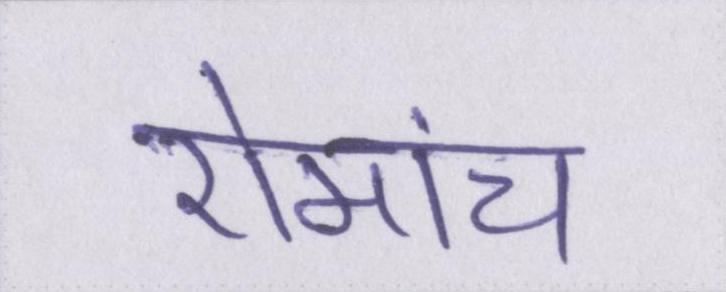 रोमांच